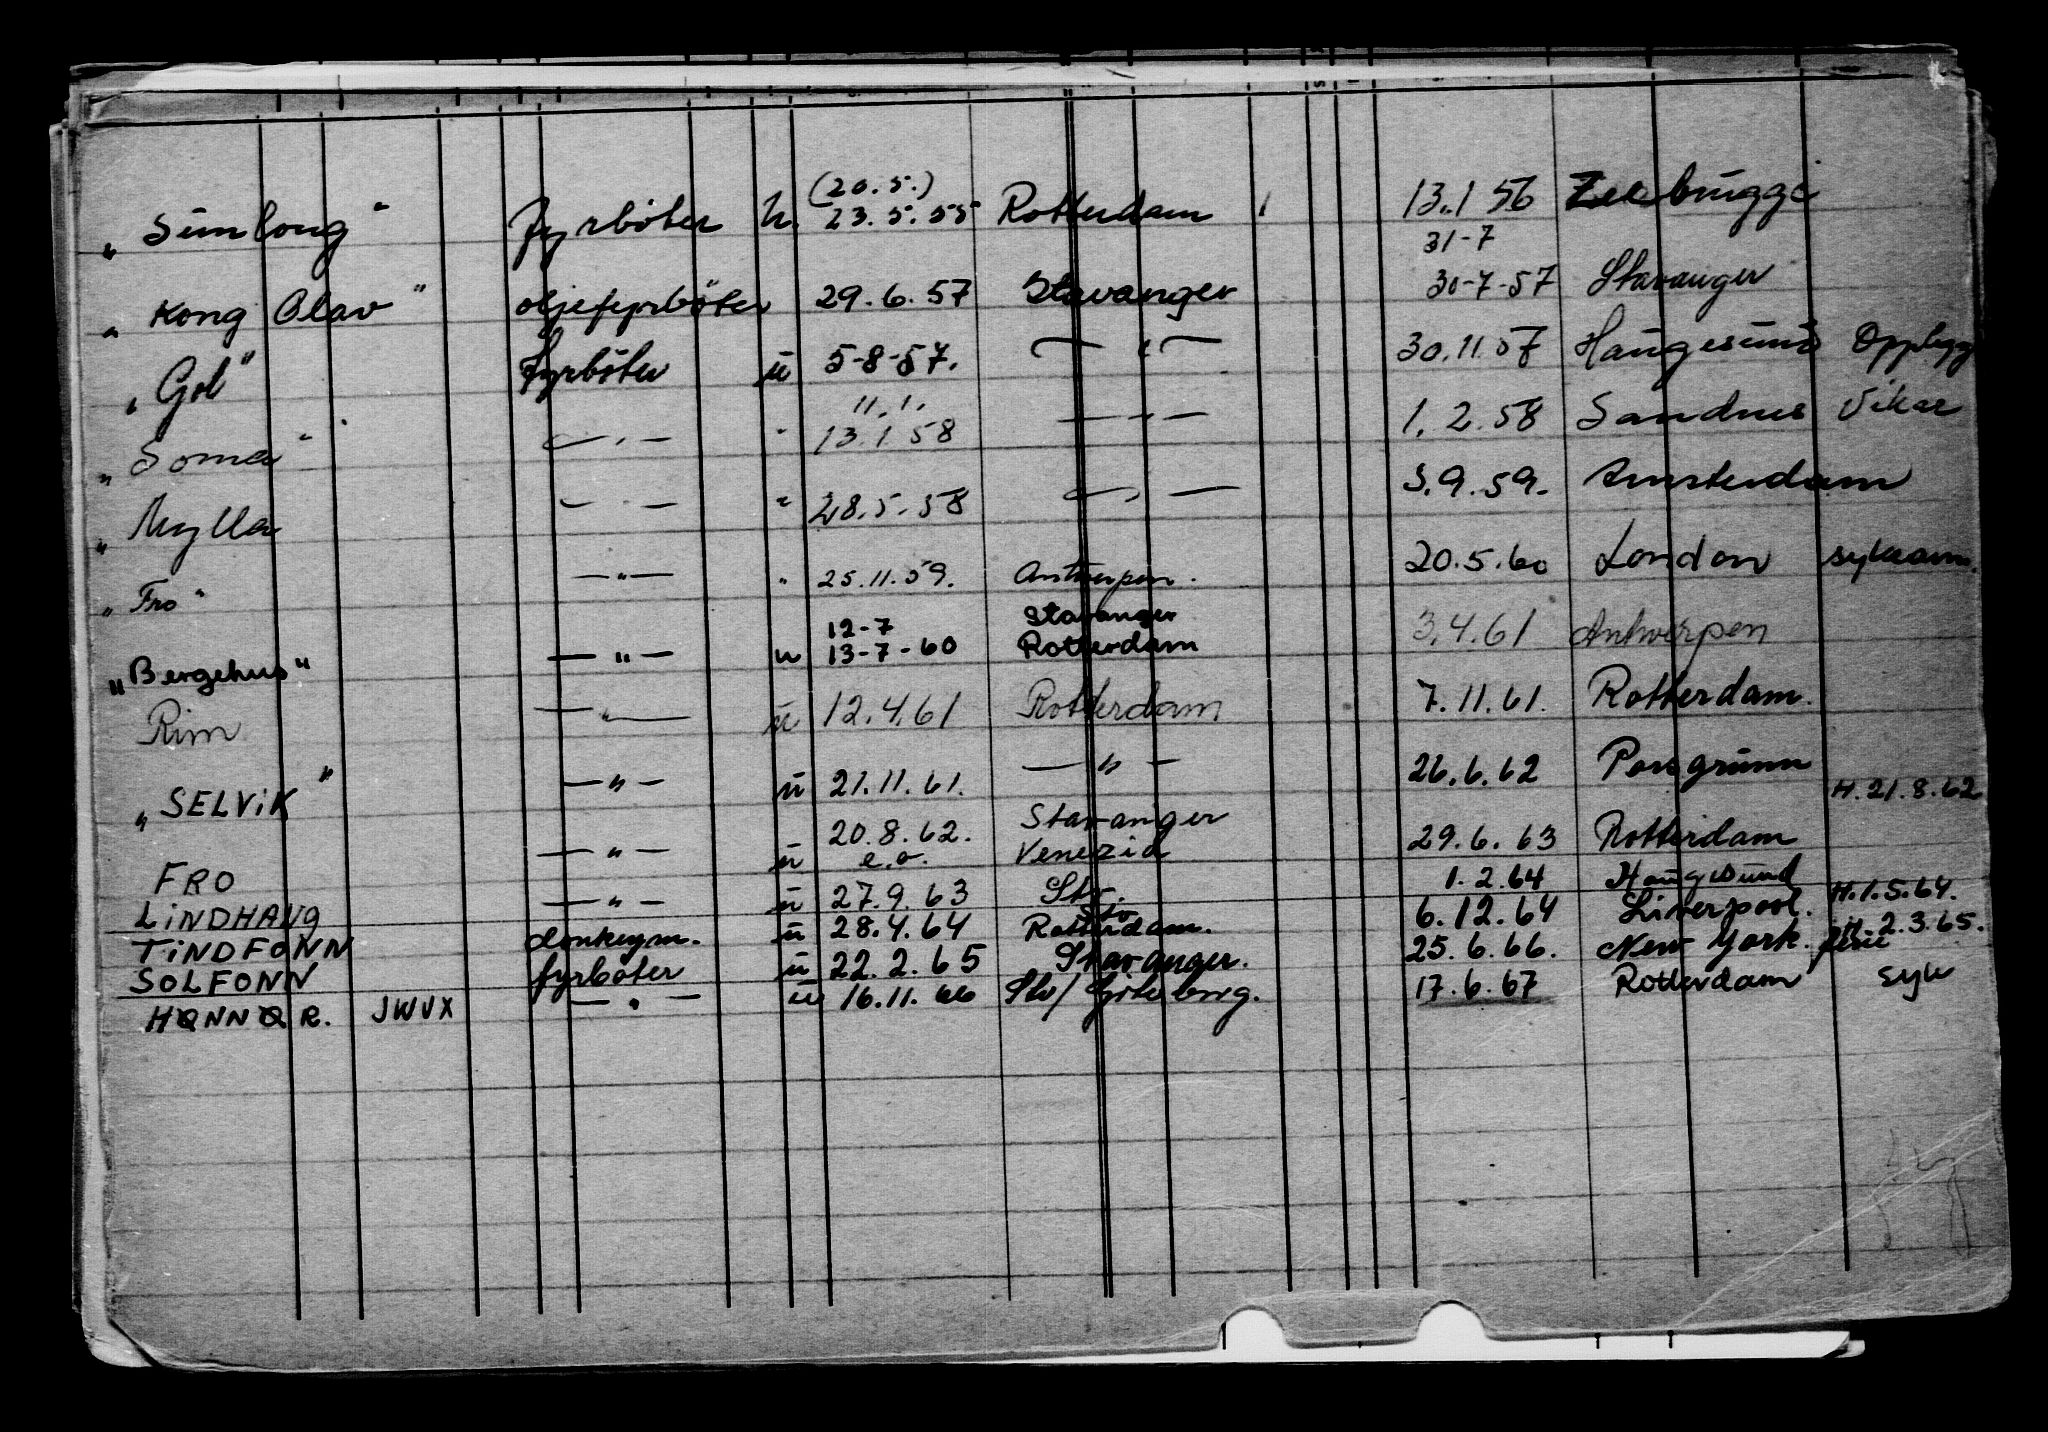 (20.5.)
"Sunlong" fyrböter u. 23.5.55 Rotterdam 13.1 56 Zeebrügge
31-7
"Kong Olav" oljefyrböter 29.6.57 Stavanger 30-7-57 Stavanger
"Gol" fyrböter ü 5-8-57. — " — 30.11.57 Haugesünd Opplegg
11.1.
"Soma" — " — " 13.1 58 — " — 1.2.58 Sandnes Vikar
"Mylla — " — " 28.5.58 — " — 5.9.59. Amsterdam
"Fro" — " — " 25.11.59. Antwerpen. 20.5.60 London sykdom.
12-7 Stavanger
"Bergehus" — " — u 13-7-60 Rotterdam 3.4.61 Antwerpen
Rim — " — ü 12.4.61 Rotterdam 7.11.61. Rotterdam.
"SELViK" — " — ü 21.11.61. — " — 26.6.62 Porsgrunn
H.21.8.62
20.8.62. Stavanger
FRO — " — ü e.o. Venezia 29.6.63 Rotterdam
LiNDHAUG — " — ü 27.9.63 Stv. 1.2.64 Haugesund
Stv
TiNDFONN donkeym. ü 28.4.64 Rotterdam. 6.12.64 Liverpool. H.1.5.64.
SOLFONN fyrböter ü 22.2.65 Stavanger. 25.6.66. New York. H.2.3.65. ferie
HØNNØR. JWVX — " — ü 16.11.66 Stv/Göteborg. 17.6.67 Rotterdam syk